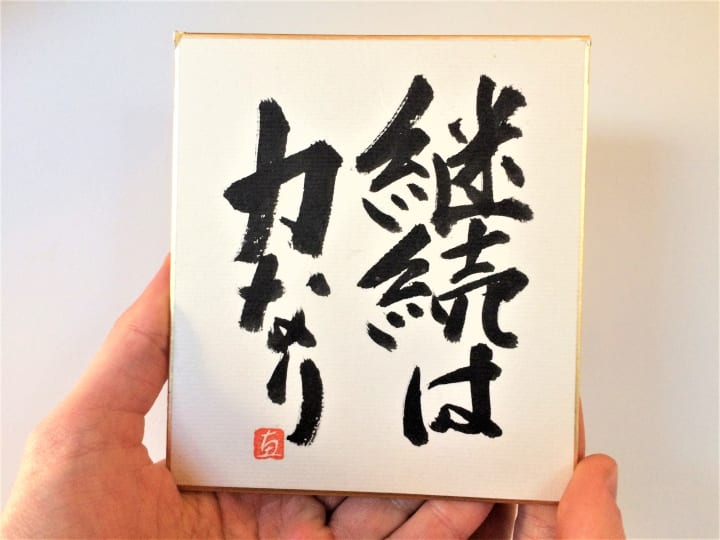 継続は
力なり
直